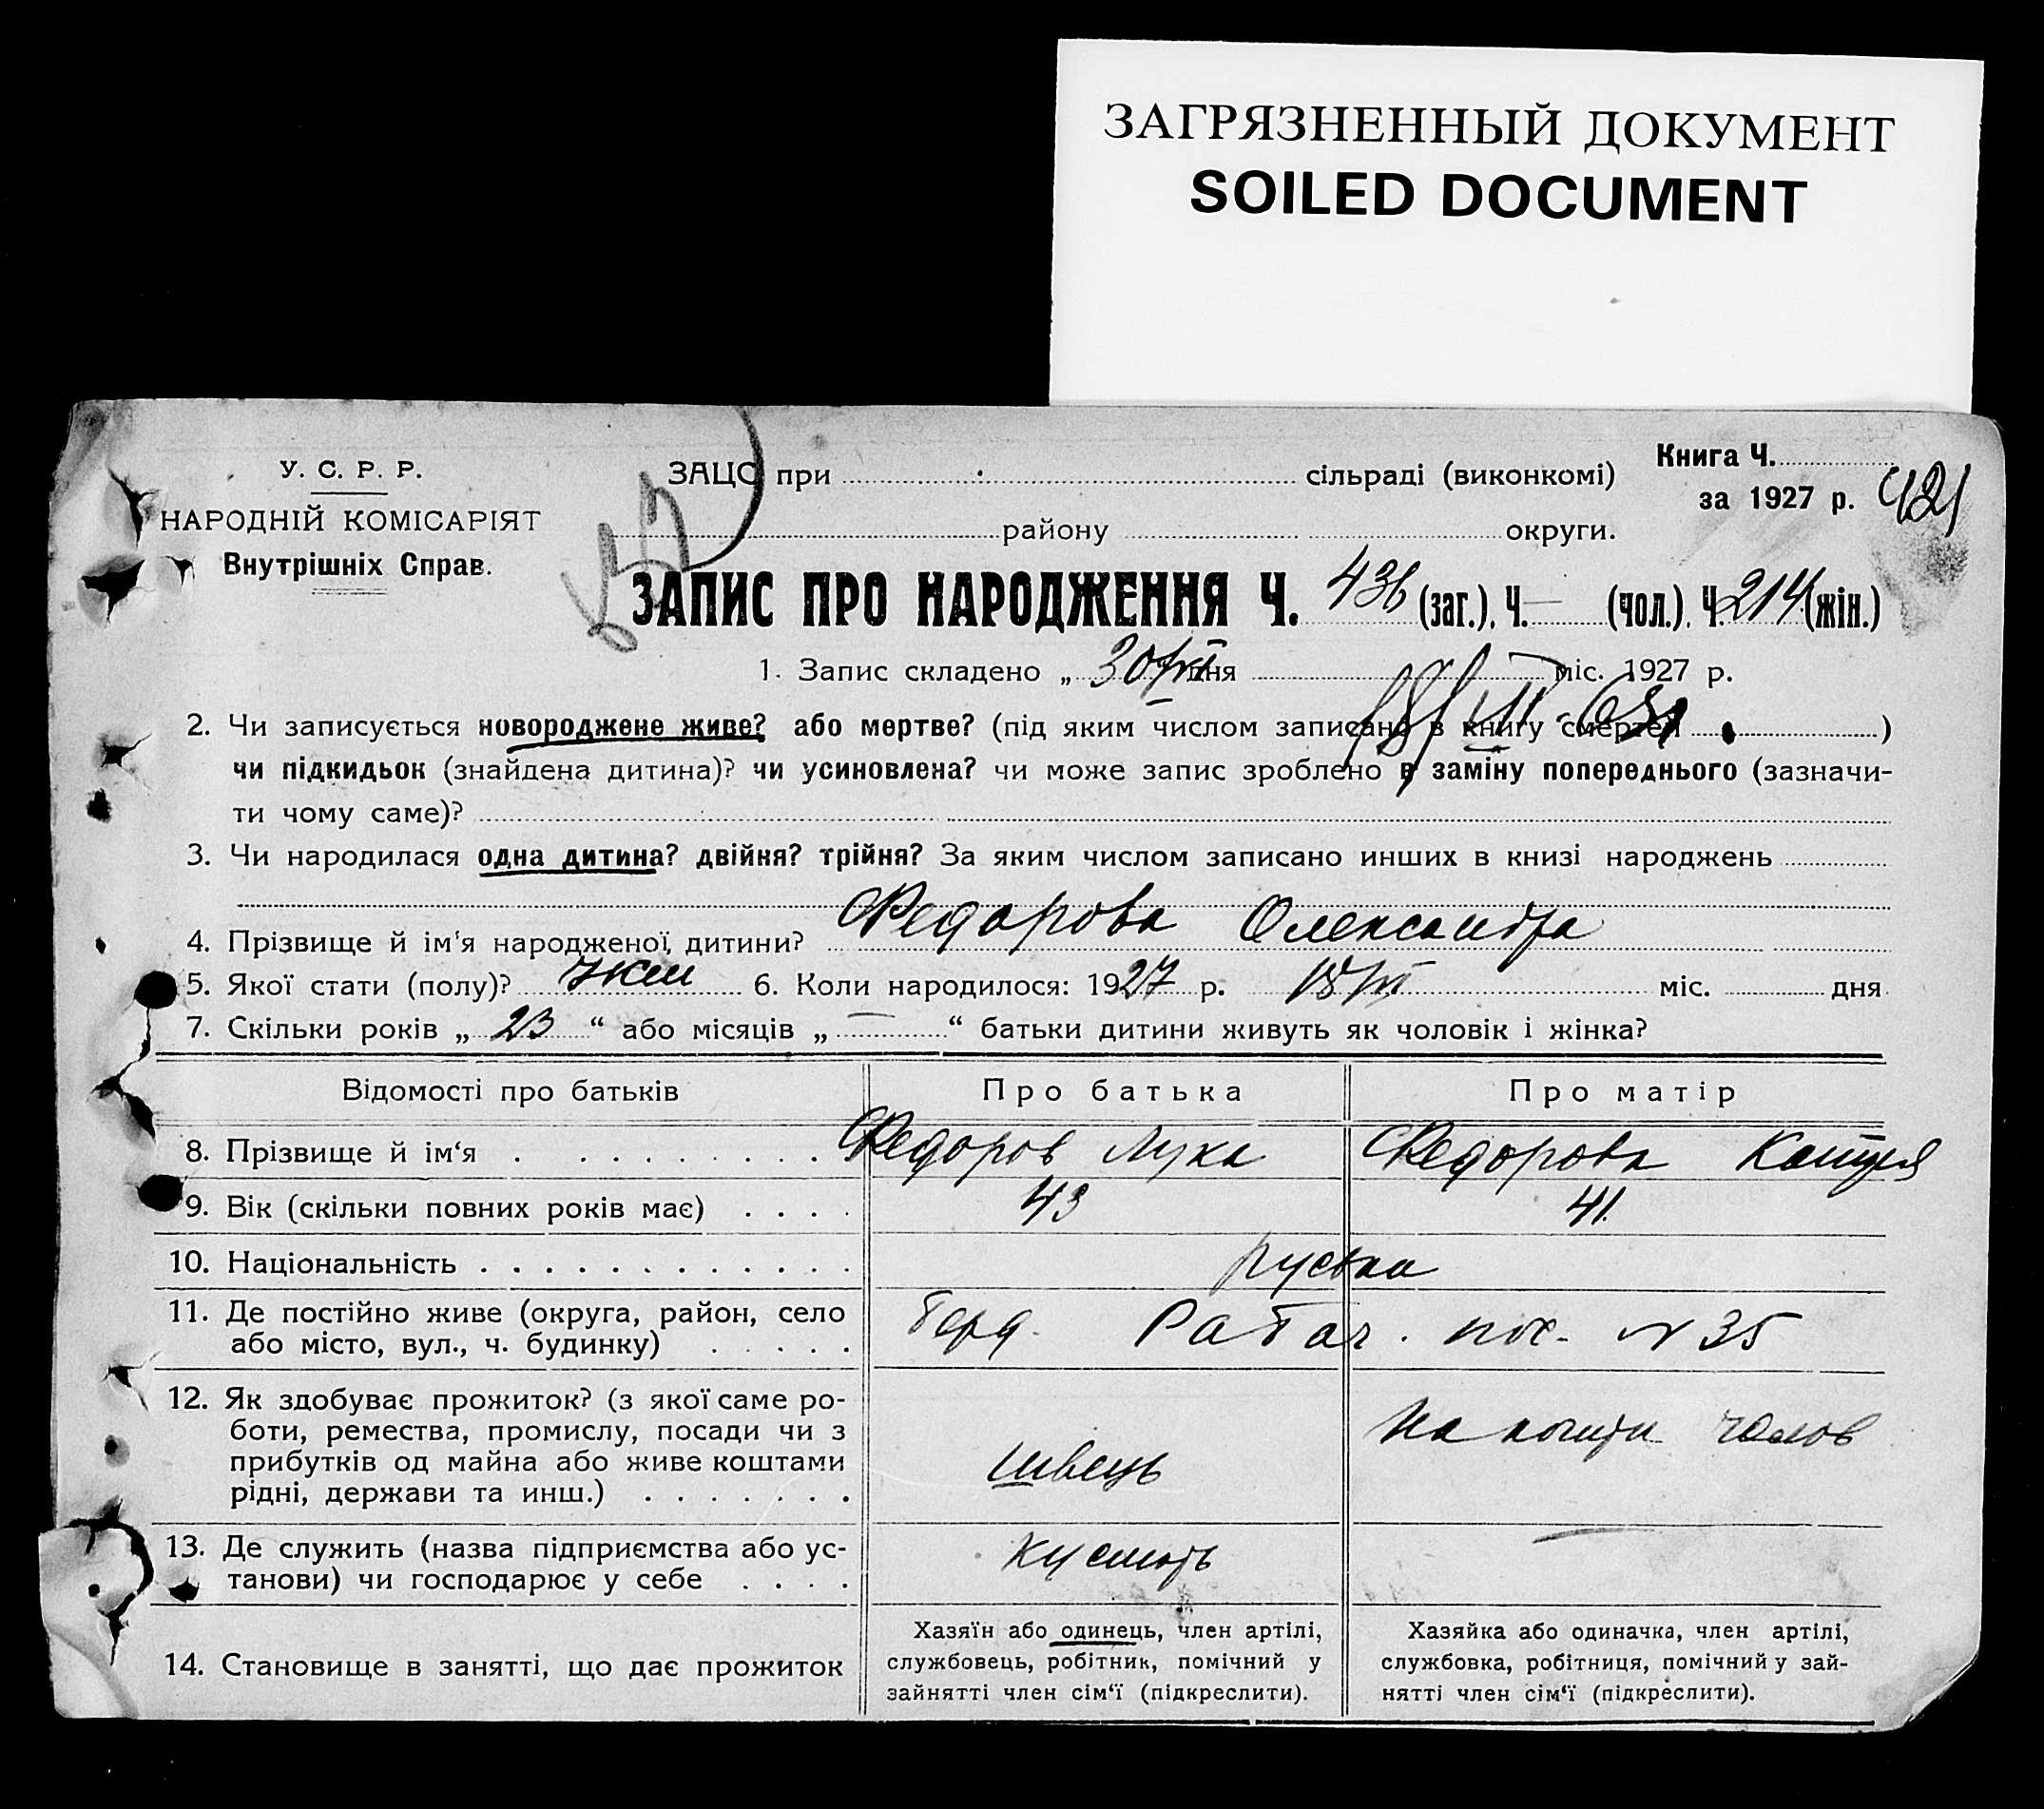 ЗАГРЯЗНЕННЫЙ ДОКУМЕНТ
SOILED DOCUMENT
У. С. Р. Р.
НАРОДНІЙ КОМІСАРІЯТ
Внутрішніх Справ.
ЗАЦС при сільраді (виконкомі)
району округи.
Книга Ч.
за 1927 р. 421
ЗАПИС ПРО НАРОДЖЕННЯ Ч. 436 (заг.), Ч. — (чол.), Ч. 214 (жін.)
1. Запис складено „ 30/ дня міс. 1927 р.
2. Чи записується новороджене живе? або мертве? (під яким числом записано в книгу смертей )
чи підкидьок (знайдена дитина)? чи усиновлена? чи може запис зроблено в заміну попереднього (зазначи-
ти чому саме)?
3. Чи народилася одна дитина? двійня? трійня? За яким числом записано инших в книзі народжень
4. Прізвище й ім'я народженої дитини? Федорова Олександра
5. Якої стати (полу)? жін 6. Коли народилося: 1927 р. 18/ міс. дня
7. Скільки років „ 23 “ або місяців „ — “ батьки дитини живуть як чоловік і жінка?
Відомості про батьків Про батька Про матір
8. Прізвище й ім‘я Федоров Лука Федорова
9. Вік (скільки повних років має) 43 41
10. Національність руська
11. Де постійно живе (округа, район, село
або місто, вул., ч. будинку) Берд. Рабоч. пос. № 35
12. Як здобуває прожиток? (з якої саме ро-
боти, ремества, промислу, посади чи з
прибутків од майна або живе коштами
рідні, держави та инш.)
швець
На кошти чолов
13. Де служить (назва підприємства або ус-
танови) чи господарює у себе
кустарь
—
14. Становище в занятті, що дає прожиток
Хазяїн або одинець, член артілі,
службовець, робітник, помічний у
зайнятті член сім‘ї (підкреслити).
Хазяйка або одиначка, член артілі,
службовка, робітниця, помічний у зай-
нятті член сім‘ї (підкреслити).